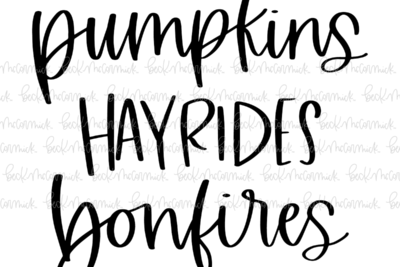 pumpkins
HAYRIDES
bonfires